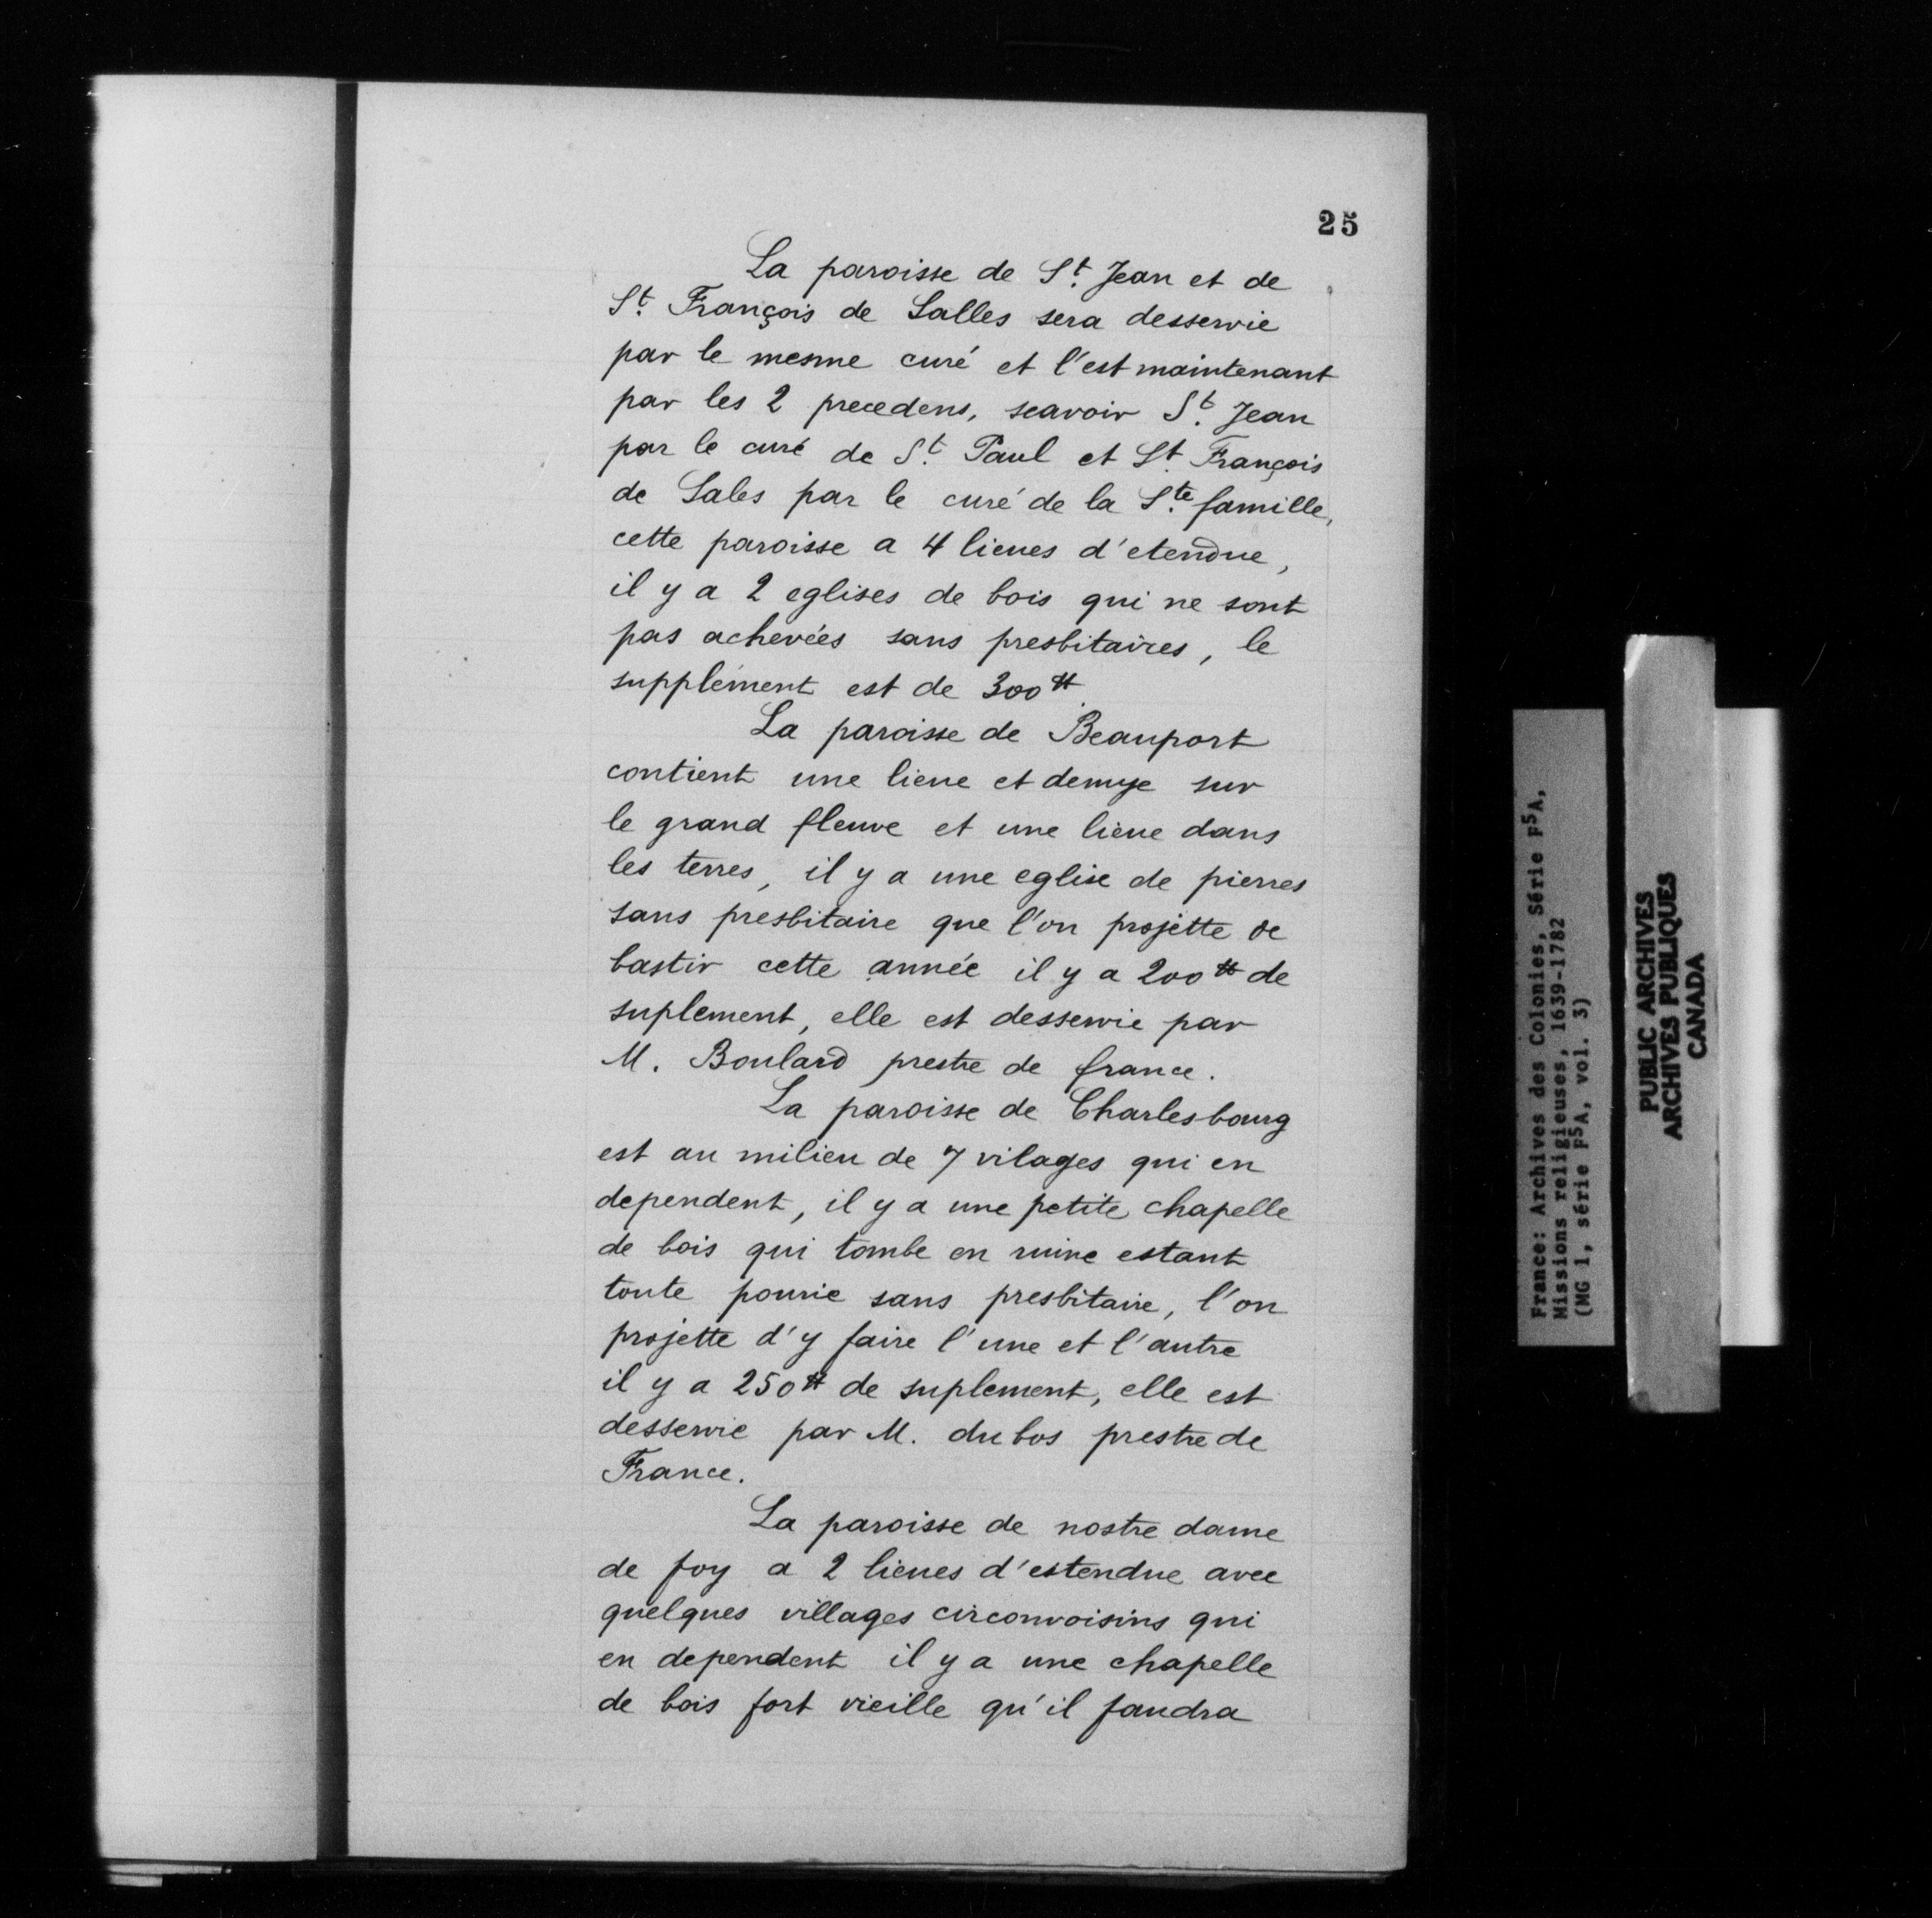 25
La paroisse de St. Jean et de
St. François de Salles sera desservie
par le mesme curé et l'est maintenant
par les 2 precedens, scavoir St. Jean
par le curé de St. Paul et St. François
de Sales par le curé de la Ste. famille,
cette paroisse a 4 lieues d'etendue,
il y a 2 eglises de bois qui ne sont
pas achevées sans presbitaires, le
supplément est de 300 ₶.
La paroisse de Beauport
contient une lieue et demye sur
le grand fleuve et une lieue dans
les terres, il y a une eglise de pierres
sans presbitaire que l'on projette de
bastir cette année il y a 200 ₶ de
suplement, elle est desservie par
M. Boulard prestre de france.
La paroisse de Charlesbourg
est au milieu de 7 vilages qui en
dependent, il y a une petite chapelle
de bois qui tombe en ruine estant
toute pourie sans presbitaire, l'on
projette d'y faire l'une et l'autre
il y a 250 ₶ de suplement, elle est
desservie par M. du bos prestre de
France.
La paroisse de nostre dame
de foy a 2 lieues d'estendue avec
quelques villages circonvoisins qui
en dependent il y a une chapelle
de bois fort vieille qu'il faudra
France: Archives des Colonies, Série F5A,
Missions religieuses, 1639-1782
(MG 1, série F5A, vol. 3)
PUBLIC ARCHIVES
ARCHIVES PUBLIQUES
CANADA